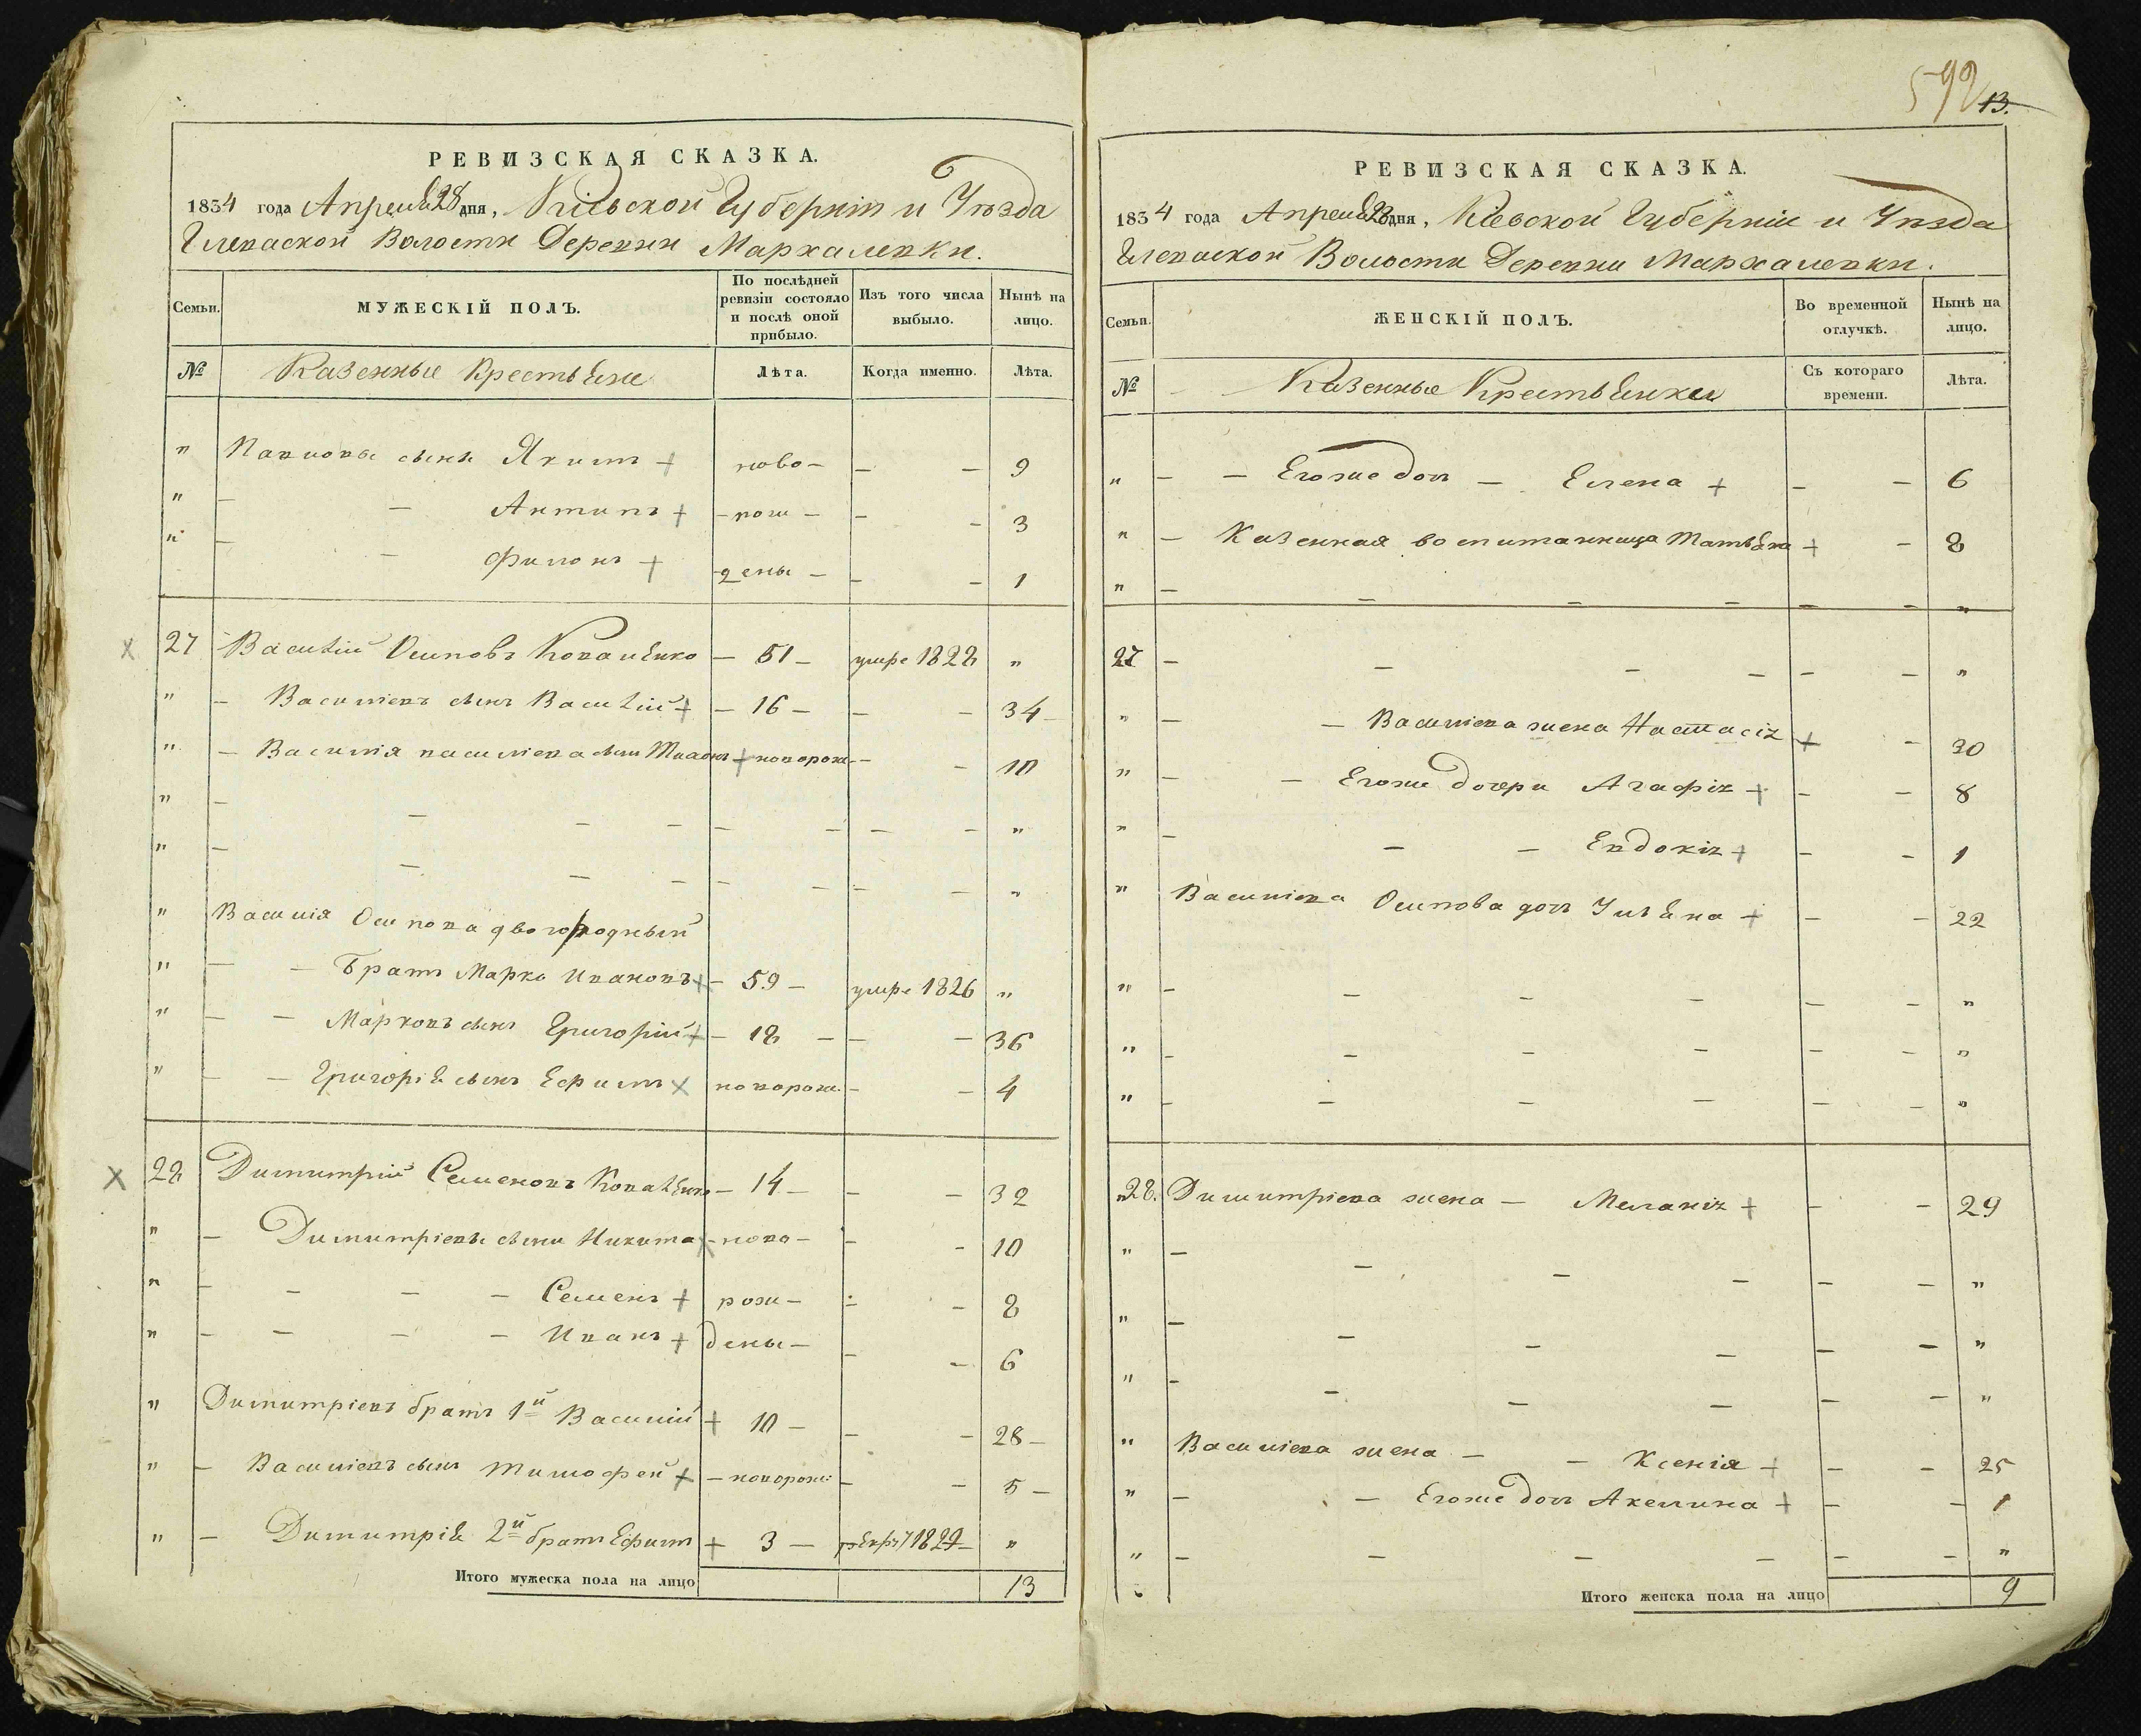 592
13.
РЕВИЗСКАЯ СКАЗКА.
1834 года Апреля 28 дня, Кіевской Губерніи и Уѣзда
Глеваской Волости Деревни Мархалевки.
Семьи. МУЖЕСКІЙ ПОЛЪ. По послѣдней ревизіи состояло и послѣ оной прибыло. Изъ того числа выбыло. Нынѣ на лицо.
№ Казенные Крестьяне Лѣта. Когда именно. Лѣта.
" Павловы сыны Якимъ + ново- - - 9
" - - Антипъ + - рож - - - 3
" - - Филонъ + дены - - - 1
27 Василій Осиповъ Ковалѣнко - 51 - умре 1828 "
" - Василіевъ сынъ Василій + - 16 - - - 34
" - Василія василіева сынъ + новорож - - 10
" - - - - - - - - "
" - - - - - - - - "
" Василія Осипова двоюродный
" - - Братъ Марко Ивановъ + - 59 - умре 1826 "
" - - Марковъ сынъ Григорій + - 18 - - - 36
" - - Григоріѣ сынъ Ефимъ х новорож. - - 4
28 Димитрій Семеновъ Ковалѣнко - 14 - - - 32
" - Димитріевы сыны Никита х - ново - - - 10
" - - - - Семенъ + рож - - - 8
" - - - - Иванъ + дены - - - 6
" Димитріевъ братъ 1й Василій + 10 - - - 28 -
" - Василіевъ сынъ Тимофей + - новорож: - - 5 -
" - Димитріѣ 2й братъ Ефим + 3 - 1829 - "
Итого мужеска пола на лицо 13
РЕВИЗСКАЯ СКАЗКА.
1834 года Апреля 28 дня, Кіевской Губерніи и Уѣзда
Глеваской Волости Деревни Мархалевки.
Семьи. ЖЕНСКІЙ ПОЛЪ. Во временной отлучкѣ. Нынѣ на лицо.
№ Казенные Крестьянки Съ котораго времени. Лѣта.
" - - Егоже доч - Елена + - - 6
" - Казенная воспитанница Татьяна + - 8
" - - - - - - "
27 - - - - - - "
" - - Василіева жена Настасія + - 30
" - - Егоже дочери Агафія + - - 8
" - - - Евдокія + - - 1
" Василіева Осипова доч Ульяна + - - 22
" - - - - - - "
" - - - - - - "
" - - - - - - "
28. Димитріева жена - Меланія + - - 29
" - - - - - - "
" - - - - - - "
" - - - - - - "
" Василіева жена - - Ксенія + - - 25
" - - Егоже доч Акелина + - - 1
" - - - - - - "
Итого женска пола на лицо 9